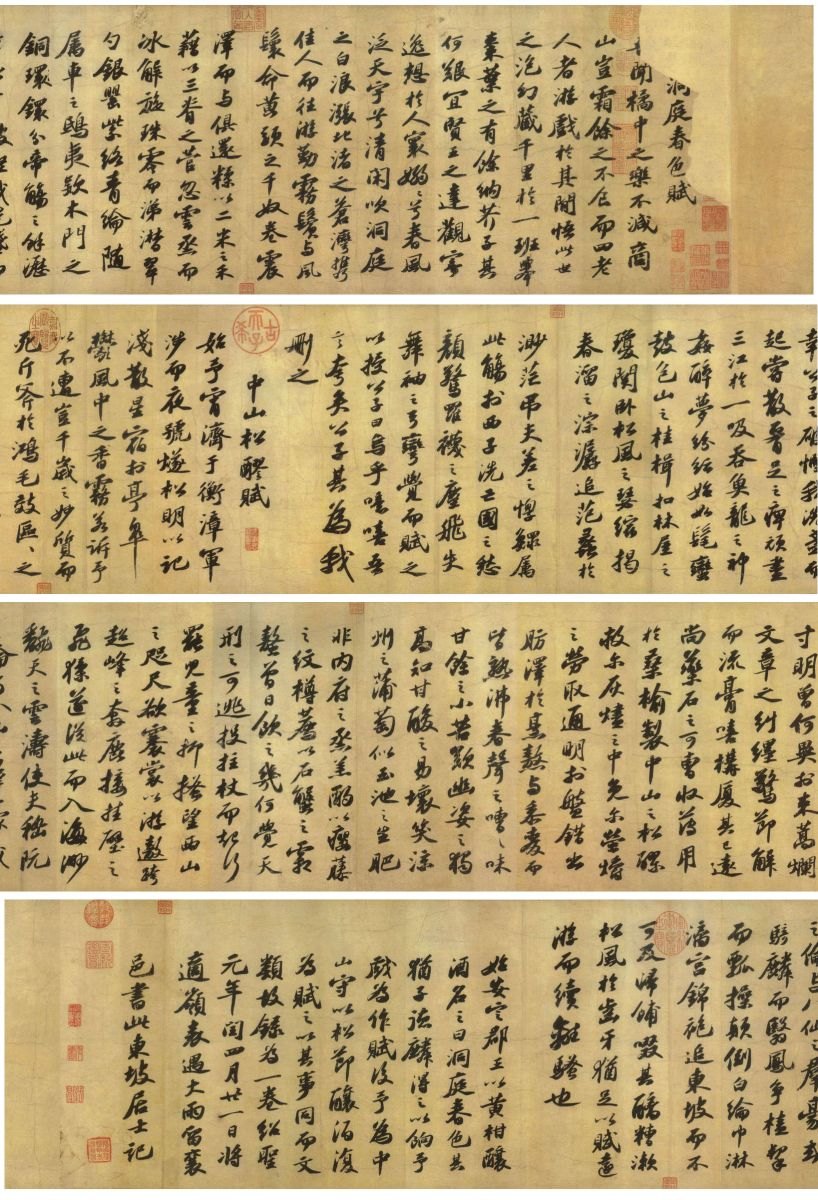 洞庭春色賦
聞橘中之樂不減商
山豈霜餘之不食而四老
人者游戲於其間悟此世
之泡幻藏千里於一班舉
棗葉之有餘納芥子其
何艱宜賢王之達觀寄
逸想於人寰嫋嫋兮春風
泛天宇兮清閑吹洞庭
之白浪漲北渚之蒼灣攜
佳人而往游勤霧鬢與風
鬟命黃頭之千奴卷震
澤而与俱還糅以二米之禾
藉以三脊之菅忽雲烝而
冰解旋珠零而涕潸翠
勺銀罌紫絡青綸隨
屬車之鴟夷款木門之
銅環鐶分帝觴之餘瀝
幸公子之破慳我洗盞而
起嘗散腰足之痹頑盡
三江於一吸吞魚龍之神
姦醉夢紛紜始如髦蠻
鼓包山之桂楫扣林屋之
瓊關臥松風之瑟縮揭
春溜之淙潺追范蠡於
渺茫弔夫差之惸鰥屬
此觴於西子洗亡國之愁
顏驚羅襪之塵飛失
舞袖之弓彎覺而賦之
以授公子曰烏乎噫嘻吾
言夸矣公子其為我
刪之
古希天子
中山松醪賦
始予宵濟于衡漳軍
涉而夜號燧松明以記
淺散星宿於亭皋
鬱風中之香霧若訴予
以不遭豈千歲之妙質而
死斤斧於鴻毛效區區之
寸明曾何異於束蒿爛
文章之糾纆驚節解
而流膏嘻構廈其已遠
尚藥石之可曹收薄用
於桑榆製中山之松醪
救尔灰燼之中免尔螢爝
之勞取通明於盤錯出
肪澤於烹熬与黍麥而
皆熟沸舂聲之嘈嘈味
甘餘之小苦歎幽姿之獨
高知甘酸之易壞笑涼
州之蒲萄似玉池之生肥
非內府之烝羔酌以癭藤
之紋樽薦以石蟹之霜
螯曾日飲之幾何覺天
刑之可逃投拄杖而起行
罷兒童之抑搔望西山
之咫尺欲褰裳以游遨跨
超峰之奔鹿接挂壁之
飛猱遂從此而入海渺
翻天之雲濤使夫嵇阮
之倫与八仙之群豪或
騎麟而翳鳳爭榼挈
而瓢操顛倒白綸巾淋
漓宮錦袍追東坡而不
可及歸餔歠其醨糟漱
松風於齒牙猶足以賦遠
游而續離騷也
始安定郡王以黃柑釀
酒名之曰洞庭春色其
猶子德麟得之以餉予
戲為作賦後予為中
山守以松節釀酒復
為賦之以其事同而文
類故錄為一卷紹聖
元年閏四月廿一日將
適嶺表遇大雨留襄
邑書此東坡居士記